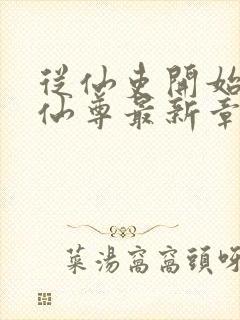 從仙吏開始
仙尊最新章
菜湯窩窩頭呀